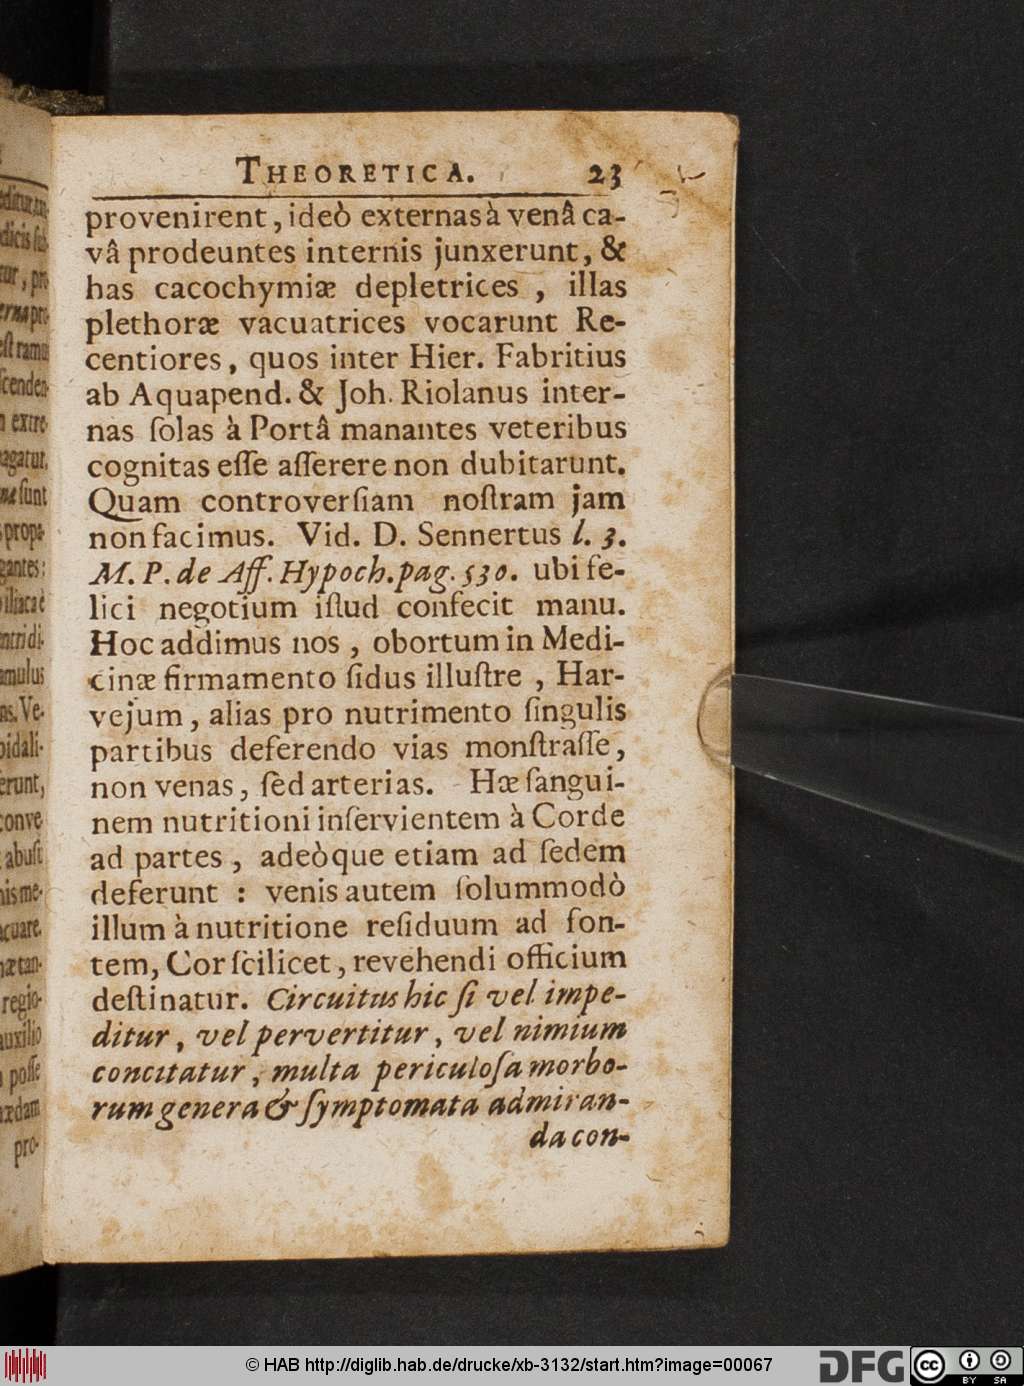 THEORETICA. 23
provenirent, ideò externas à venâ ca-
vâ prodeuntes internis junxerunt, &
has cacochymiæ depletrices , illas
plethoræ vacuatrices vocarunt Re-
centiores, quos inter Hier. Fabritius
ab Aquapend. & Joh. Riolanus inter-
nas ſolas à Portâ manantes veteribus
cognitas eſſe aſſerere non dubitarunt.
Quam controverſiam noſtram jam
non facimus. Vid. D. Sennertus l. 3.
M. P. de Aff. Hypoch. pag. 530. ubi fe-
lici negotium iſtud confecit manu.
Hoc addimus nos , obortum in Medi-
cinæ firmamento ſidus illuſtre , Har-
vejum , alias pro nutrimento ſingulis
partibus deferendo vias monſtraſſe,
non venas, ſed arterias. Hæ ſangui-
nem nutritioni inſervientem à Corde
ad partes , adeòque etiam ad ſedem
deferunt : venis autem ſolummodò
illum à nutritione reſiduum ad fon-
tem, Cor ſcilicet, revehendi officium
deſtinatur. Circuitus hic ſi vel impe-
ditur, vel pervertitur, vel nimium
concitatur, multa periculoſa morbo-
rum genera & ſymptomata admiran-
da con-
erunt,
conve
auxilio
pro-
© HAB http://diglib.hab.de/drucke/xb-3132/start.htm?image=00067
DFG
cc
BY SA